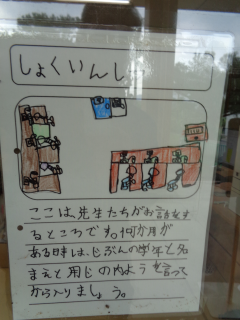 しょくいんし
ここは先生たちがお話をす
るところです。何か用が
ある時は、じぶんの学年と名
まえと用じの内ようを言って
から入りましょう。